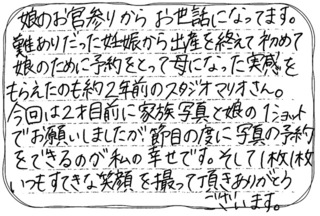 娘のお宮参りからお世話になってます。
難ありだった妊娠から出産を終えて初めて
娘のために予約をとって母になった実感を
もらえたのも約2年前のスタジオマリオさん。
今回は2才目前に家族写真と娘の1ショット
でお願いしましたが節目の度に写真の予約
をできるのが私の幸せです。そして1枚1枚
いつもすてきな笑顔を撮って頂きありがとう
ございます。